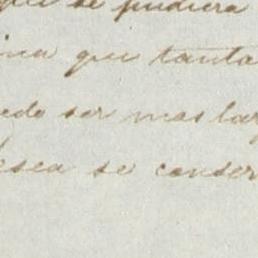 que se pudiera
ina que tanta
edo ser mas lar
esea se conser